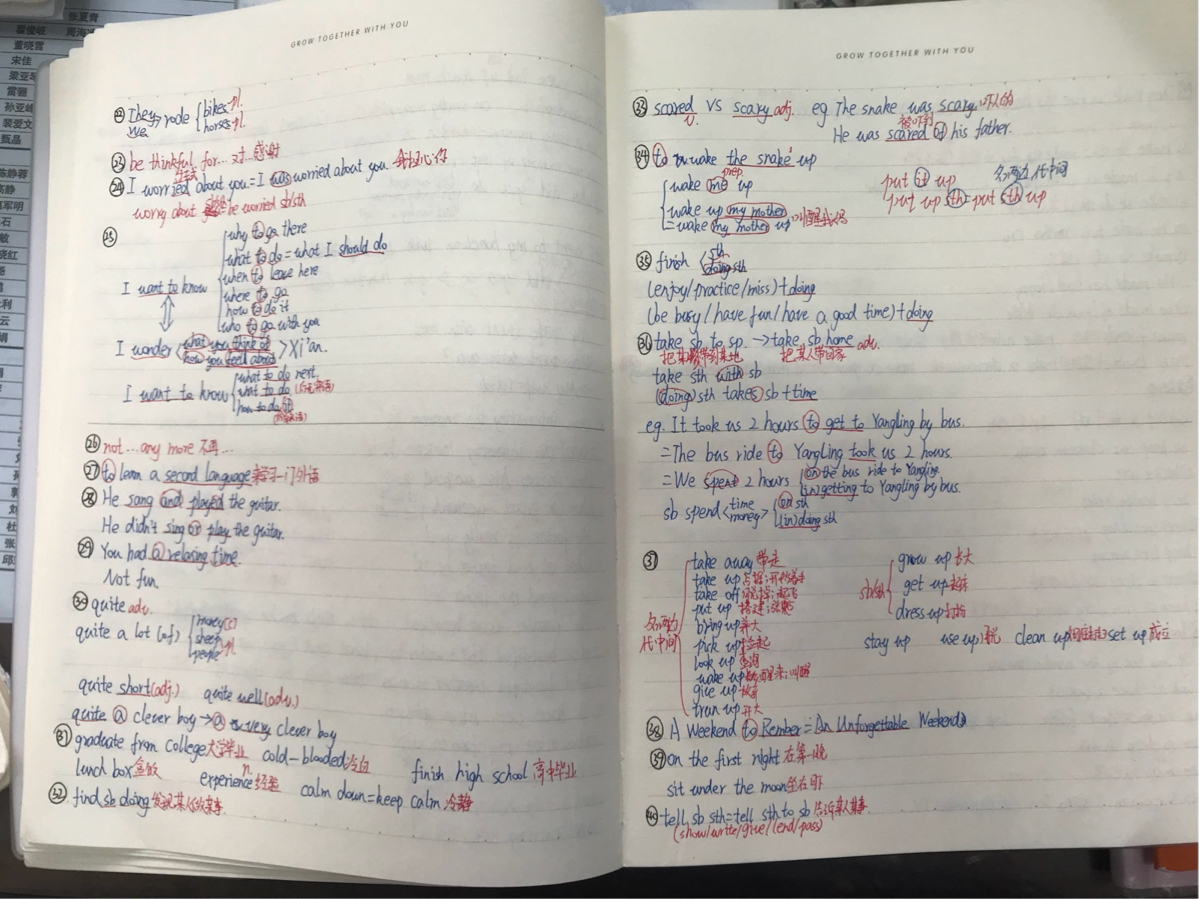 张夏青
翟俊岐
董晓雪
宋佳
雷丽
孙亚峰
裴爱文
甄品
陈静蓉
GROW TOGETHER WITH YOU
㉒ They rode bikes pl.
We horses pl.
㉓ be thinkful for... 对...感谢
㉔ I worried about you. = I was worried about you.
worry about be worried sb/sth
㉕
why to go there
what to do = what I should do
I want to know when to leave here
where to go
how to do it
who to go with you
I wonder what you think of Xi'an.
how you feel about
I want to know what to do next.
what to do
how to do it
㉖ not...any more 不再...
㉗ to learn a second language 学习一门外语
㉘ He sang and played the guitar.
He didn't sing or play the guitar.
㉙ You had a relaxing time.
Not fun.
㉚ quite adv.
quite a lot (of) money
sheep
people pl.
quite short (adj.) quite well (adv.)
quite a clever boy → a very clever boy
㉛ graduate from college 大学毕业 cold-blooded 冷血
lunch box 盒饭 experience n 经验 finish high school 高中毕业
㉜ find sb doing 发现某人做某事. calm down = keep calm 冷静
GROW TOGETHER WITH YOU
㉝ scared VS scary adj. eg The snake was scary. 吓人的
v. 被吓到
He was scared of his father.
㉞ to wake the snake up
prep.
wake me up put it up 名两边代中间
wake up my mother put up sth = put sth up
= wake my mother up 叫醒我妈
㉟ finish sth
doing sth
(enjoy/practice/miss) + doing
(be busy/have fun/have a good time) + doing
㊱ take sb to sp. → take sb home adv.
把某人带到某地 把某人带回家
take sth with sb
(doing) sth takes sb + time
eg. It took us 2 hours to get to Yangling by bus.
= The bus ride to Yangling took us 2 hours.
= We spent 2 hours on the bus ride to Yangling.
(in) getting to Yangling by bus.
sb spend time on sth
money (in) doing sth
㊲ take away 带走 grow up 长大
take up 占据;开始着手 get up 起床
take off 脱掉;起飞 dress up 打扮
put up 搭建;张贴
名两边 bring up 养大
代中间 pick up 捡起 stay up use up clean up set up 成立
look up 查询
wake up 叫醒
give up 放弃
turn up 开大
㊳ A Weekend to Rember = An Unforgettable Weekend
㊴ on the first night 在第一晚
sit under the moon
㊵ tell sb sth = tell sth to sb 告诉某人某事
(show/write/give/lend/pass)